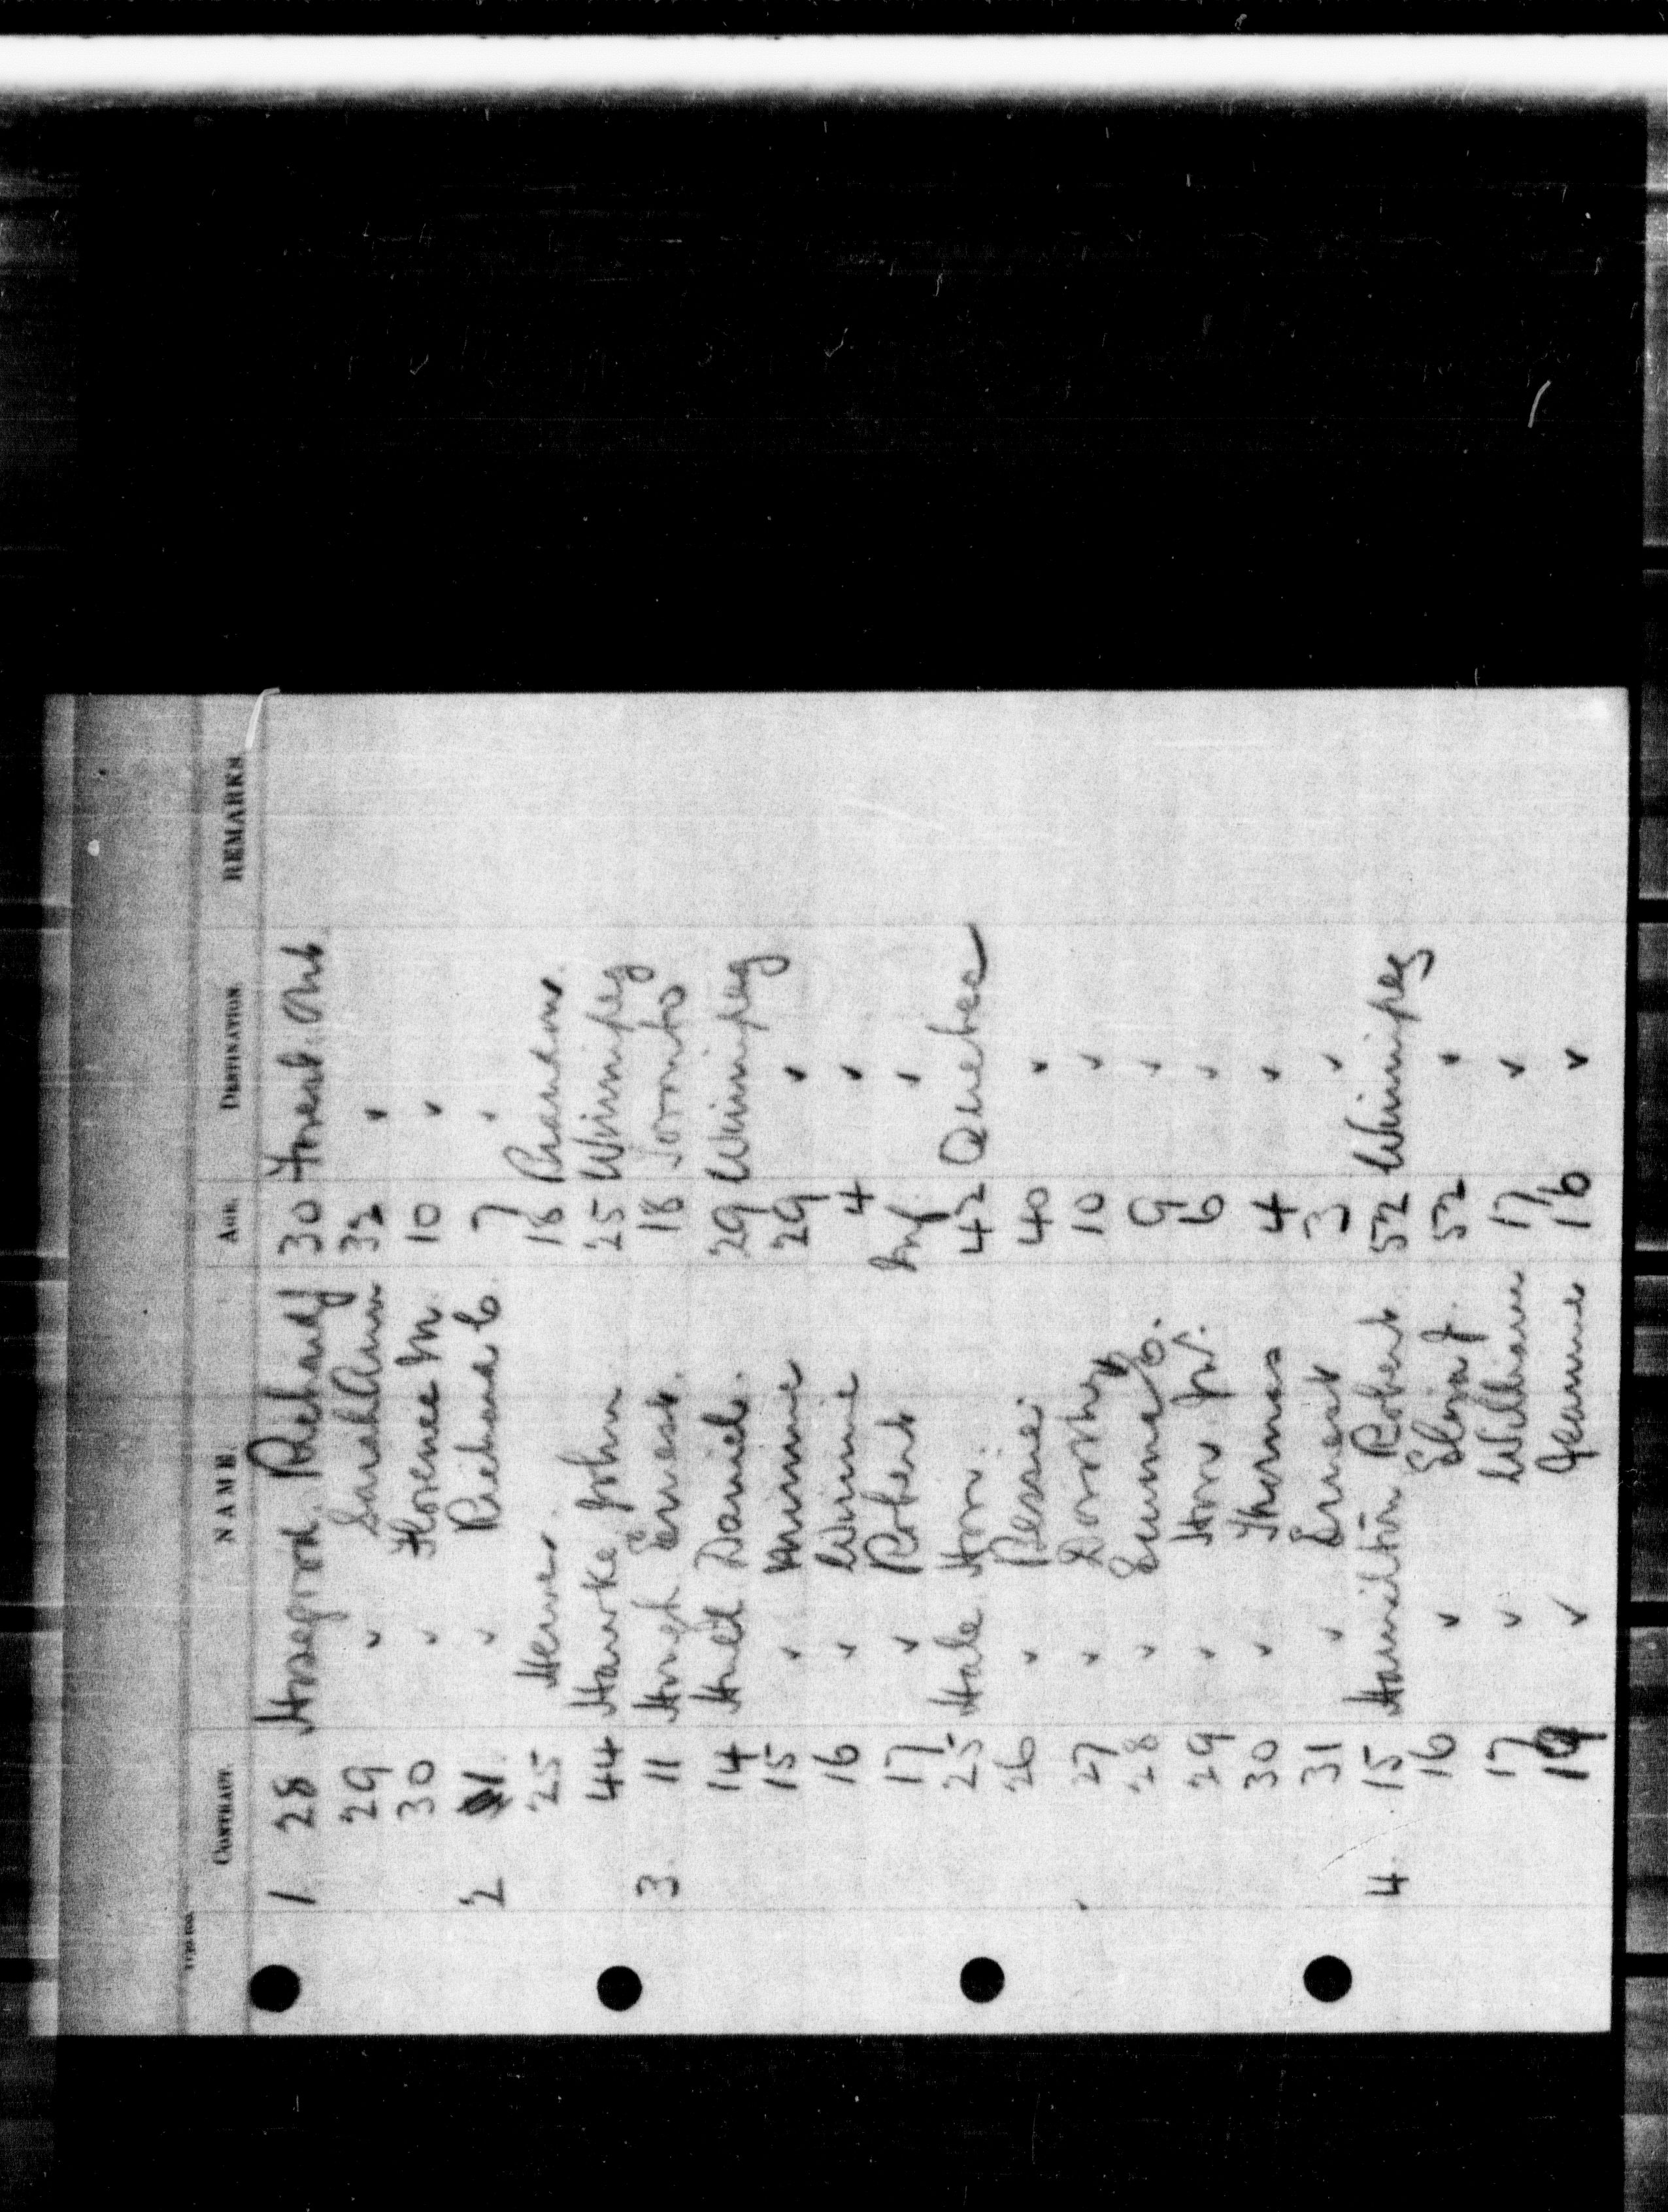 CONTRACT. NAME. AGE. DESTINATION. REMARKS
1 28 Hosegood Richard J 30 Forest Ont
29 " Sarah Ann 32 "
30 " Florence M. 10 "
2 31 " Richard C. 7 "
25 18
44 Hawke John 25 Winnipeg
3 11 Hough Ernest. 18 Toronto
14 Daniel. 29 Winnipeg
15 " Minnie 29 "
16 " Winnie 4 "
17 " Robert Inf "
25 Hale 42 Quebec
26 " Bessie. 40 "
27 " Dorothy 10 "
28 " Emma C. 9 "
29 " Jr. 6 "
30 " Thomas 4 "
31 " Ernest 3 "
4 15 Hamilton Robert 52 Winnipeg
16 " Eliza J. 52 "
17 " William 17 "
19 " Jeannie 16 "